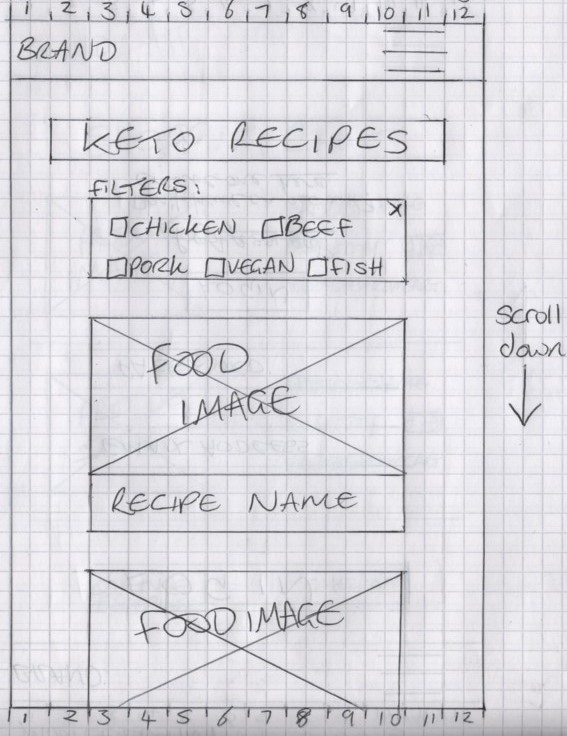 1 2 3 4 5 6 7 8 9 10 11 12
BRAND
KETO RECIPES
FILTERS:
X
CHICKEN BEEF
PORK VEGAN FISH
Scroll
down
FOOD
IMAGE
RECIPE NAME
FOOD IMAGE
1 2 3 4 5 6 7 8 9 10 11 12